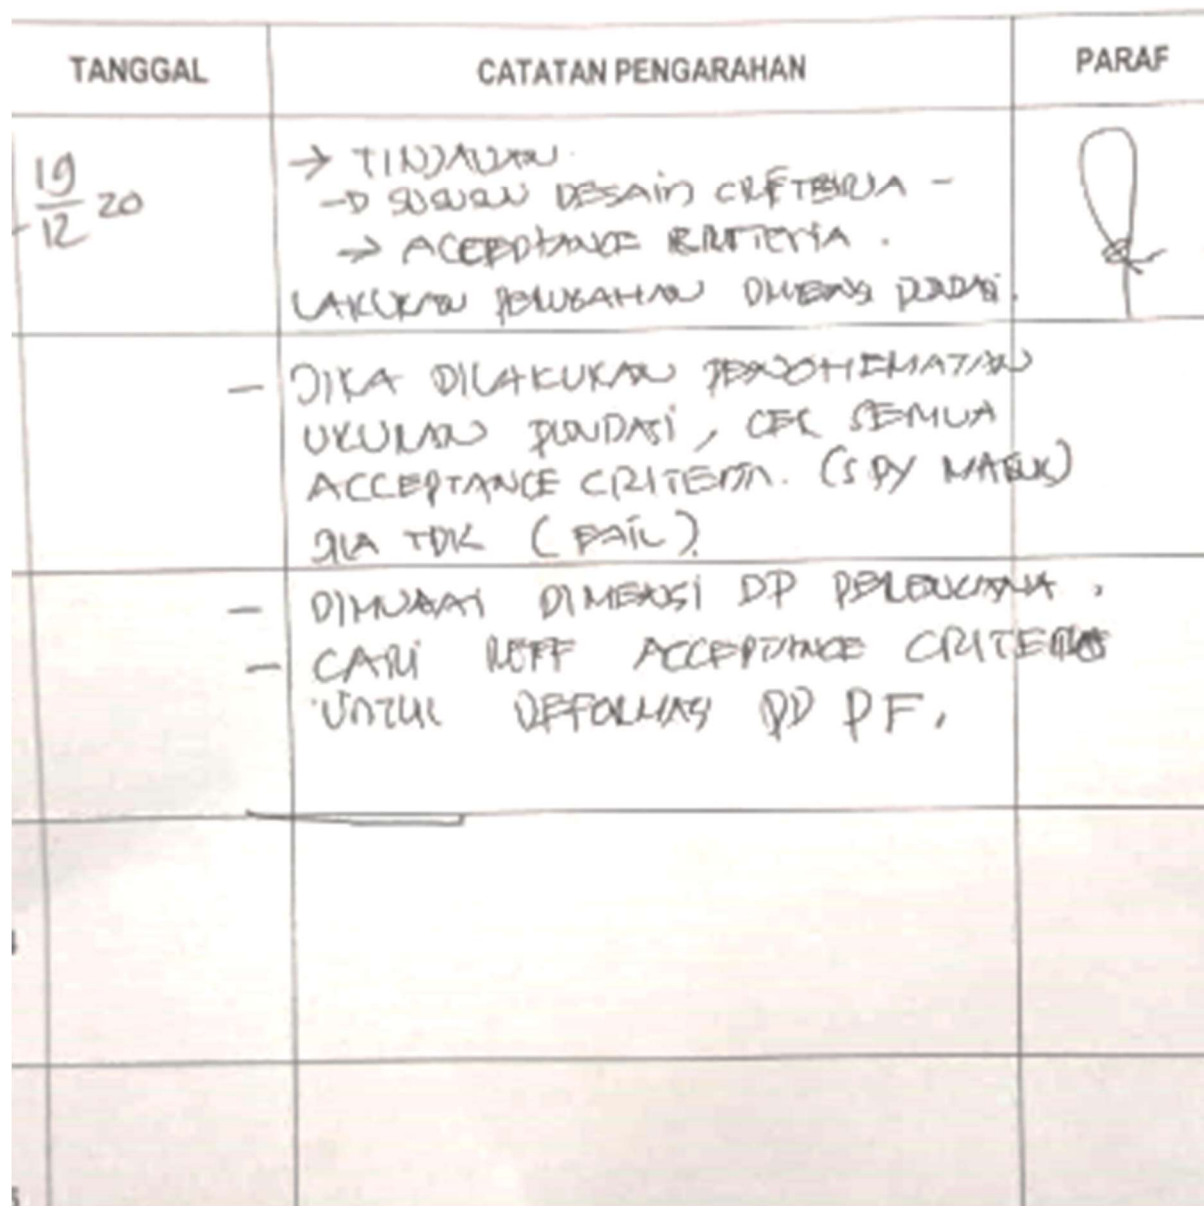 TANGGAL CATATAN PENGARAHAN PARAF
19/12 20
→ TINJAUAN.
→ SUSUN DESAIN CRETERIA -
→ ACCEPTANCE KRITERIA.
LAKUKAN PERUBAHAN DIMENSI PONDASI.
- JIKA DILAKUKAN PENGHEMATAN
UKURAN PONDASI, CEK SEMUA
ACCEPTANCE CRITERIA. (SPY MASUK)
JIKA TDK (FAIL).
- DIMULAI DIMENSI DP PERENCANA.
- CARI REFF ACCEPTANCE CRITERIA
UNTUK DEFORMASI PD PF.